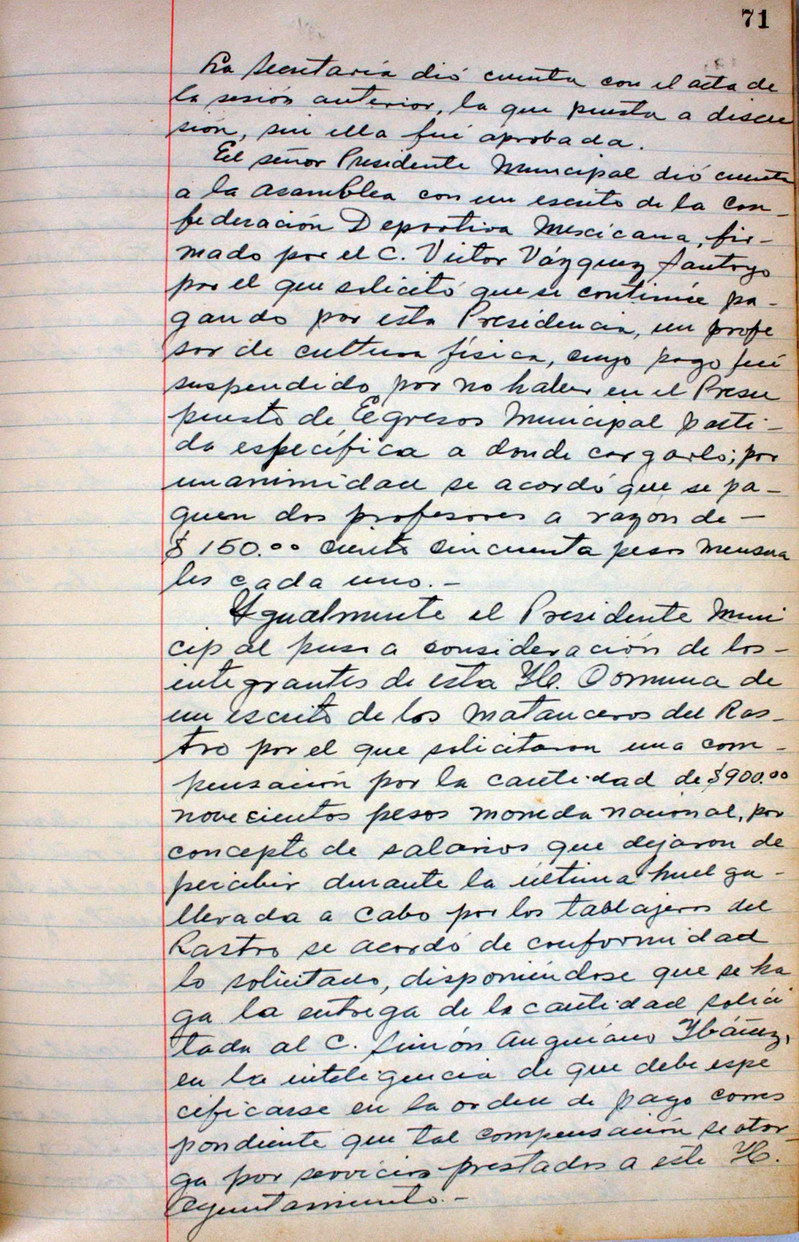 71
La Secretaría dió cuenta con el acta de
la sesión anterior, la que puesta a discu
sión, sin ella fué aprobada.
El señor Presidente Municipal dió cuenta
a la asamblea con un escrito de la Con-
federación Deportiva Mexicana, fir-
mado por el C. Victor Vázquez Santoyo
por el que solicitó que se continúe pa-
gando por esta Presidencia, un profe
sor de cultura física, cuyo pago fué
suspendido por no haber en el Presu
puesto de Egresos Municipal parti-
da específica a donde cargarlo; por
unanimidad se acordó que se pa-
guen dos profesores a razón de -
$150.00 ciento cincuenta pesos mensua
les cada uno.-
Ygualmente el Presidente Muni
cipal puso a consideración de los-
integrantes de esta H. Comuna de
un escrito de los matanceros del Ras-
tro por el que solicitaron una com-
pensación por la cantidad de $900.00
novecientos pesos moneda nacional, por
concepto de salarios que dejaron de
percibir durante la última huelga-
llevada a cabo por los tablajeros del
Rastro se acordó de conformidad
lo solicitado, disponiéndose que se ha
ga la entrega de la cantidad solici
tada al C. Simón Anguiano Ybáñez,
en la inteligencia de que debe espe
cificarse en la orden de pago corres
pondiente que tal compensación se otor-
ga por servicios prestados a este H.
Ayuntamiento.-